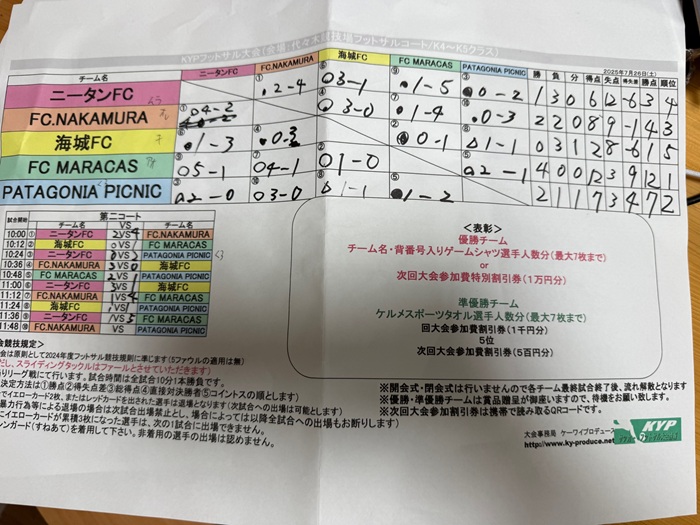 KYPフットサル大会(会場:代々木競技場フットサルコート/K4〜K5クラス)
2025年7月26日(土)
チーム名 ニータンFC FC.NAKAMURA 海城FC FC MARACAS PATAGONIA PICNIC 勝 負 分 得点 失点 得失差 勝点 順位
ニータンFC ① ●2-4 ⑥ ○3-1 ⑨ ●1-5 ③ ●0-2 1 3 0 6 12 -6 3 4
FC.NAKAMURA ① ○4-2 ④ ○3-0 ⑦ ●1-4 ⑩ ●0-3 2 2 0 8 9 -1 6 3
海城FC ⑥ ●1-3 ④ ●0-3 ② ●0-1 ⑧ △1-1 0 3 1 2 8 -6 1 5
FC MARACAS ⑨ ○5-1 ⑦ ○4-1 ② ○1-0 ⑤ ○2-1 4 0 0 12 3 9 12 1
PATAGONIA PICNIC ③ ○2-0 ⑩ ○3-0 ⑧ △1-1 ⑤ ●1-2 2 1 1 7 3 4 7 2
第二コート
試合開始 チーム名 VS チーム名
10:00 ① ニータンFC 2VS4 FC.NAKAMURA
10:12 ② 海城FC 0VS1 FC MARACAS
10:24 ③ ニータンFC 0VS2 PATAGONIA PICNIC
10:36 ④ FC.NAKAMURA 3VS0 海城FC
10:48 ⑤ FC MARACAS 2VS1 PATAGONIA PICNIC
11:00 ⑥ ニータンFC 3VS1 海城FC
11:12 ⑦ FC.NAKAMURA 1VS4 FC MARACAS
11:24 ⑧ 海城FC VS PATAGONIA PICNIC
11:36 ⑨ ニータンFC 1VS5 FC MARACAS
11:48 ⑩ FC.NAKAMURA VS PATAGONIA PICNIC
<表彰>
優勝チーム
チーム名・背番号入りゲームシャツ選手人数分(最大7枚まで)
or
次回大会参加費特別割引券(1万円分)
準優勝チーム
ケルメスポーツタオル選手人数分(最大7枚まで)
回大会参加費割引券(1千円分)
5位
次回大会参加費割引券(5百円分)
会競技規定>
会は原則として2024年度フットサル競技規則に準じます(5ファウルの適用は無)
だし、スライディングタックルはファールとさせていただきます)
りリーグ戦にて行います。試合時間は全試合10分1本勝負です。
決定方法は①勝点②得失点差③総得点④直接対決勝者⑤コイントスの順とします)
でイエローカード2枚、またはレッドカードを出された選手は退場となります(次試合への出場は可能とします)
暴力行為等による退場の場合は次試合出場禁止とし、場合によっては以降全試合への出場もお断りします)
にイエローカードが累積3枚になった選手は、次の1試合に出場できません。
ンガード(すねあて)を着用して下さい。非着用の選手の出場は認めません。
※開会式・閉会式は行いませんので各チーム最終試合終了後、流れ解散となります
※優勝・準優勝チームは賞品贈呈が御座いますので、待機をお願い致します。
※次回大会参加費割引券は携帯で読み取るQRコードです。
大会事務局 ケーワイプロデュース
http://www.ky-produce.net
KYP